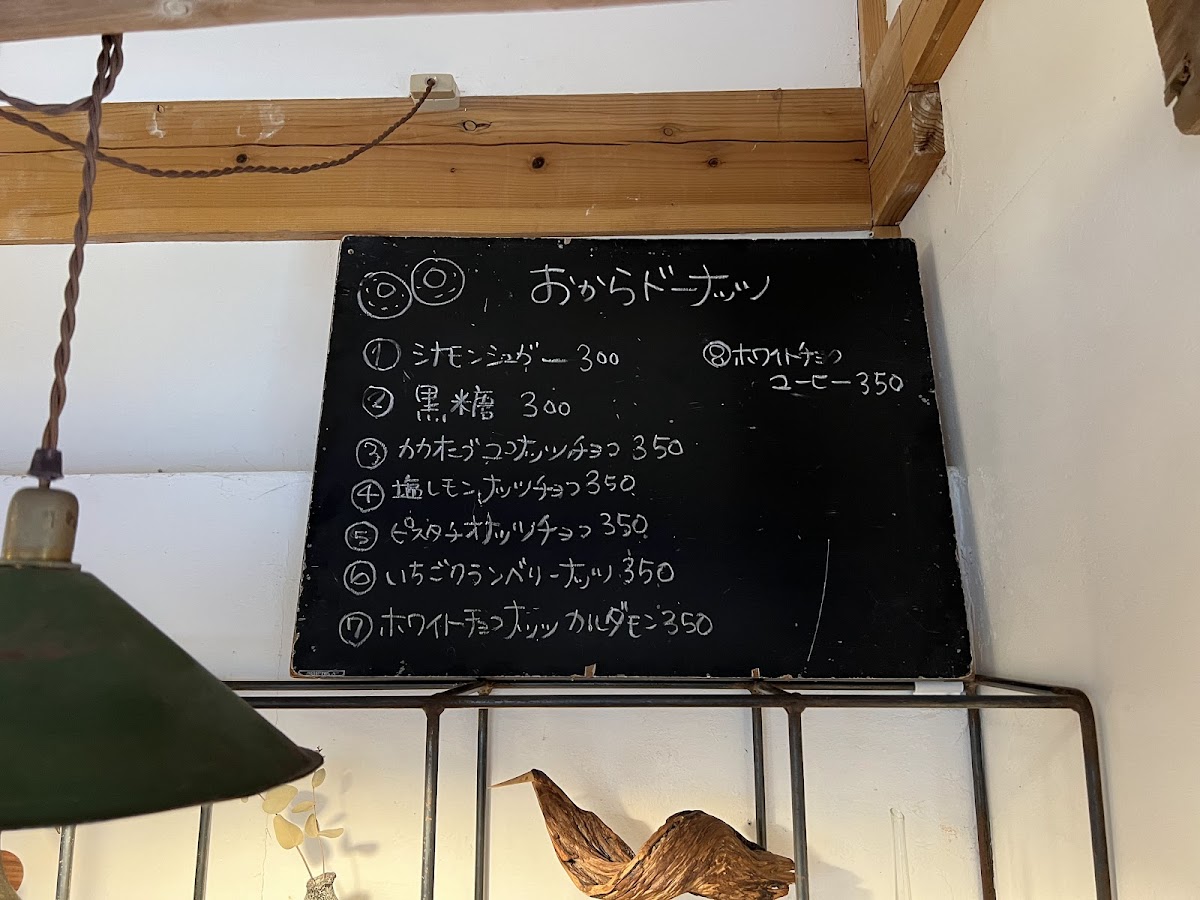 おからドーナッツ
① シナモンシュガー 300
② 黒糖 300
③ カカオニブココナッツチョコ 350
④ 塩レモンナッツチョコ 350
⑤ ピスタチオナッツチョコ 350
⑥ いちごクランベリーナッツ 350
⑦ ホワイトチョコナッツ カルダモン 350
⑧ ホワイトチョコ
コーヒー 350